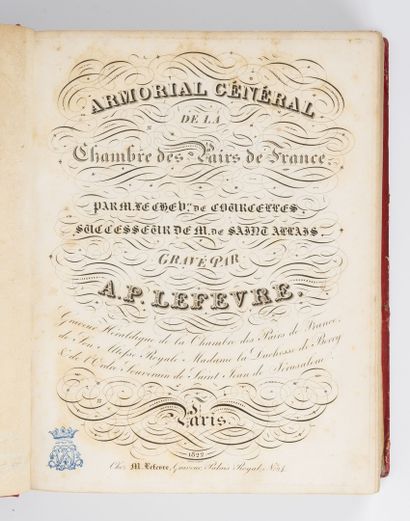 ARMORIAL GÉNÉRAL
DE LA
Chambre des Pairs de France,
PAR M. LE CHEV.R DE COURCELLES,
SUCCESSEUR DE M. DE SAINT ALLAIS.
GRAVÉ PAR
A.P. LEFEVRE.
Graveur Héraldique de la Chambre des Pairs de France,
de Son Altesse Royale Madame la Duchesse de Berry
& de l'Ordre Souverain de Saint Jean de Jérusalem
Paris.
1822
Chez M. Lefevre, Graveur, Palais Royal, N.o